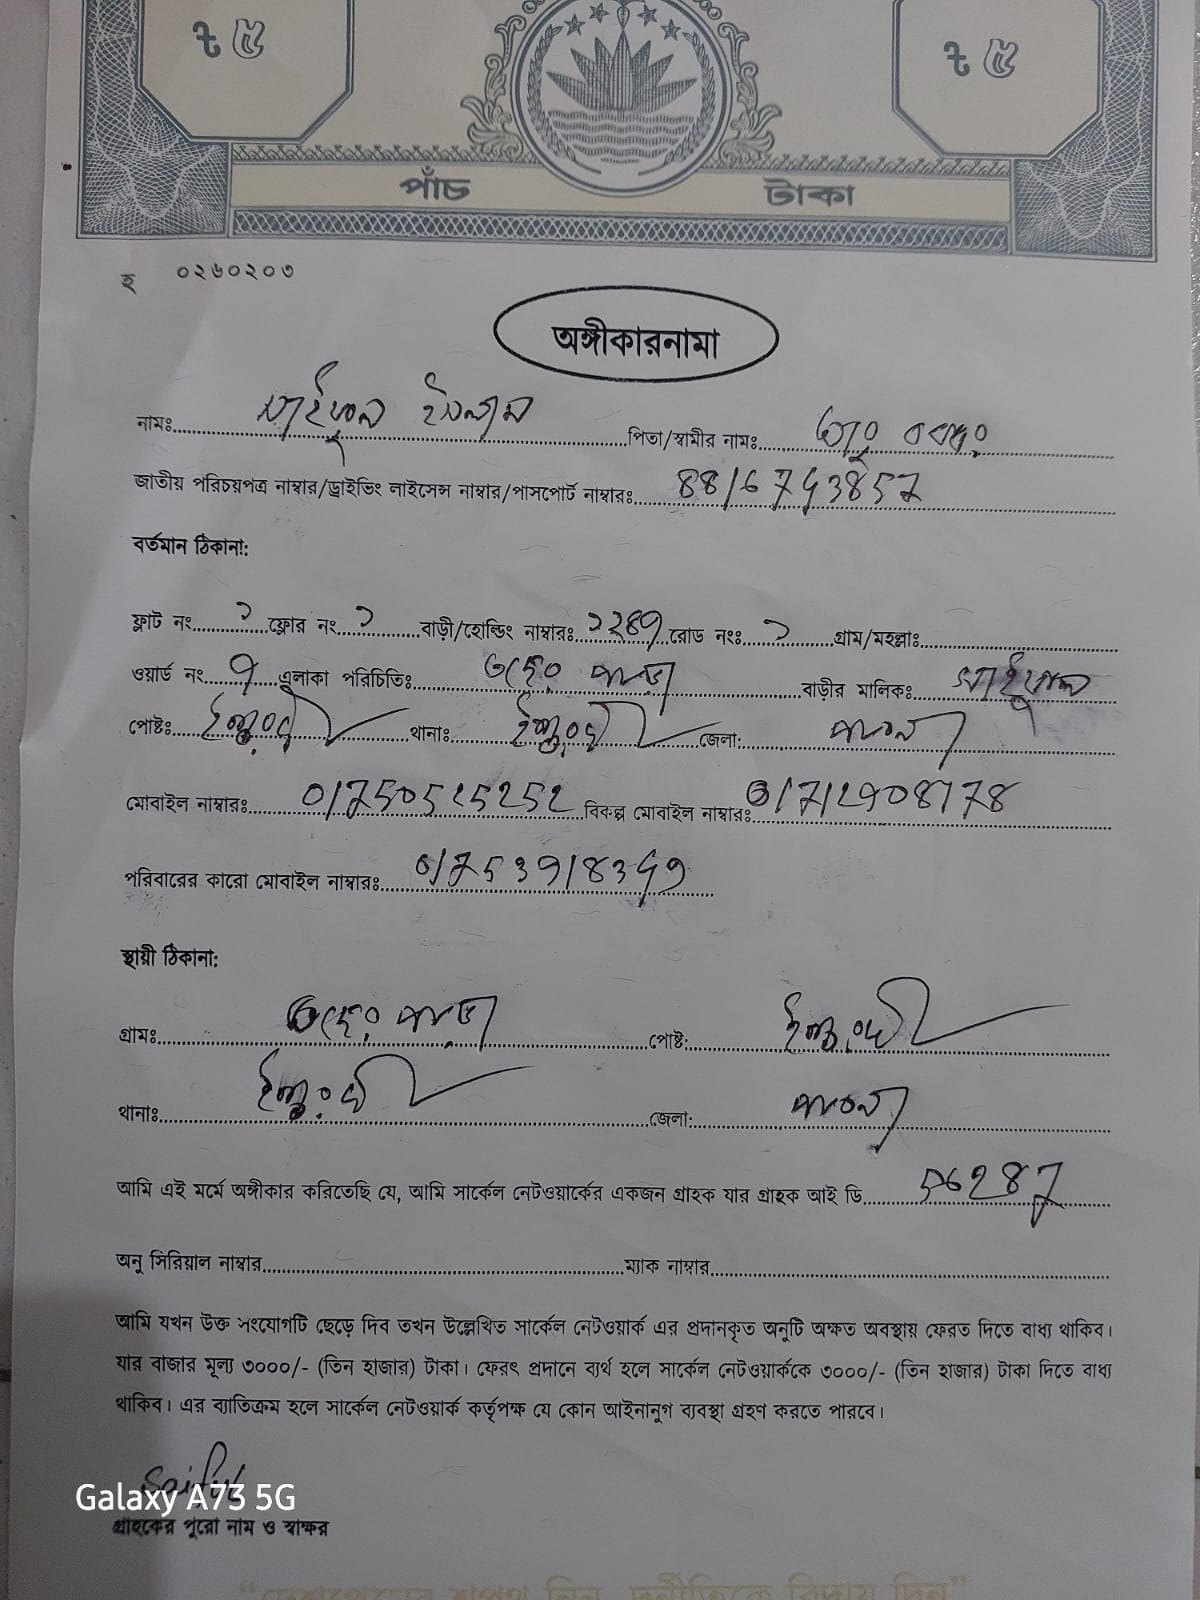 ৳ ৫ ৳ ৫
পাঁচ টাকা
হ ০২৬০২০৩
অঙ্গীকারনামা
নামঃ সাইফুল ইসলাম পিতা/স্বামীর নামঃ
জাতীয় পরিচয়পত্র নাম্বার/ড্রাইভিং লাইসেন্স নাম্বার/পাসপোর্ট নাম্বারঃ 8816743857
বর্তমান ঠিকানা:
ফ্লাট নং ফ্লোর নং বাড়ী/হোল্ডিং নাম্বারঃ রোড নংঃ গ্রাম/মহল্লাঃ
ওয়ার্ড নং ৭ এলাকা পরিচিতিঃ বাড়ীর মালিকঃ সাইফুল
পোষ্টঃ ঈশ্বরদী থানাঃ ঈশ্বরদী জেলা: পাবনা
মোবাইল নাম্বারঃ 01750525252 বিকল্প মোবাইল নাম্বারঃ
পরিবারের কারো মোবাইল নাম্বারঃ
স্থায়ী ঠিকানা:
গ্রামঃ পোষ্ট: ঈশ্বরদী
থানাঃ ঈশ্বরদী জেলা: পাবনা
আমি এই মর্মে অঙ্গীকার করিতেছি যে, আমি সার্কেল নেটওয়ার্কের একজন গ্রাহক যার গ্রাহক আই ডি 56287
অনু সিরিয়াল নাম্বার ম্যাক নাম্বার
আমি যখন উক্ত সংযোগটি ছেড়ে দিব তখন উল্লেখিত সার্কেল নেটওয়ার্ক এর প্রদানকৃত অনুটি অক্ষত অবস্থায় ফেরত দিতে বাধ্য থাকিব।
যার বাজার মূল্য ৩০০০/- (তিন হাজার) টাকা। ফেরৎ প্রদানে ব্যর্থ হলে সার্কেল নেটওয়ার্ককে ৩০০০/- (তিন হাজার) টাকা দিতে বাধ্য
থাকিব। এর ব্যাতিক্রম হলে সার্কেল নেটওয়ার্ক কর্তৃপক্ষ যে কোন আইনানুগ ব্যবস্থা গ্রহণ করতে পারবে।
Saiful
Galaxy A73 5G
গ্রাহকের পূরো নাম ও স্বাক্ষর